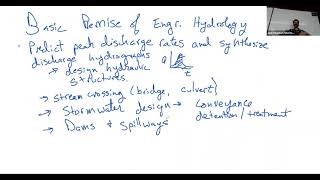 Basic Premise of Engr. Hydrology
• Predict peak discharge rates and synthesize
discharge hydrographs Q
t
→ design hydraulic
structures.
→ stream crossing (bridge, culvert)
→ Stormwater design → conveyance
detention/treatment
→ Dams & Spillways